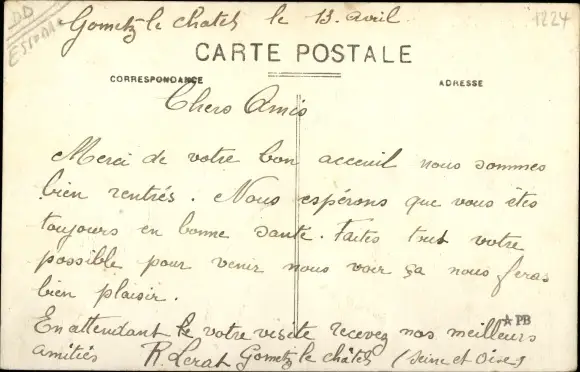 DD
1224
Gometz-le chatel le 13 avril
CARTE POSTALE
CORRESPONDANCE
ADRESSE
Chers Amis
Merci de votre bon acceuil nous sommes
bien rentrés. Nous espérons que vous êtes
toujours en bonne santé. Faites tout votre
possible pour venir nous voir ça nous feras
bien plaisir.
★ PB
En attendant le votre visite recevez nos meilleurs
amitiés R. Lerat Gometz le châtel (Seine et Oise)